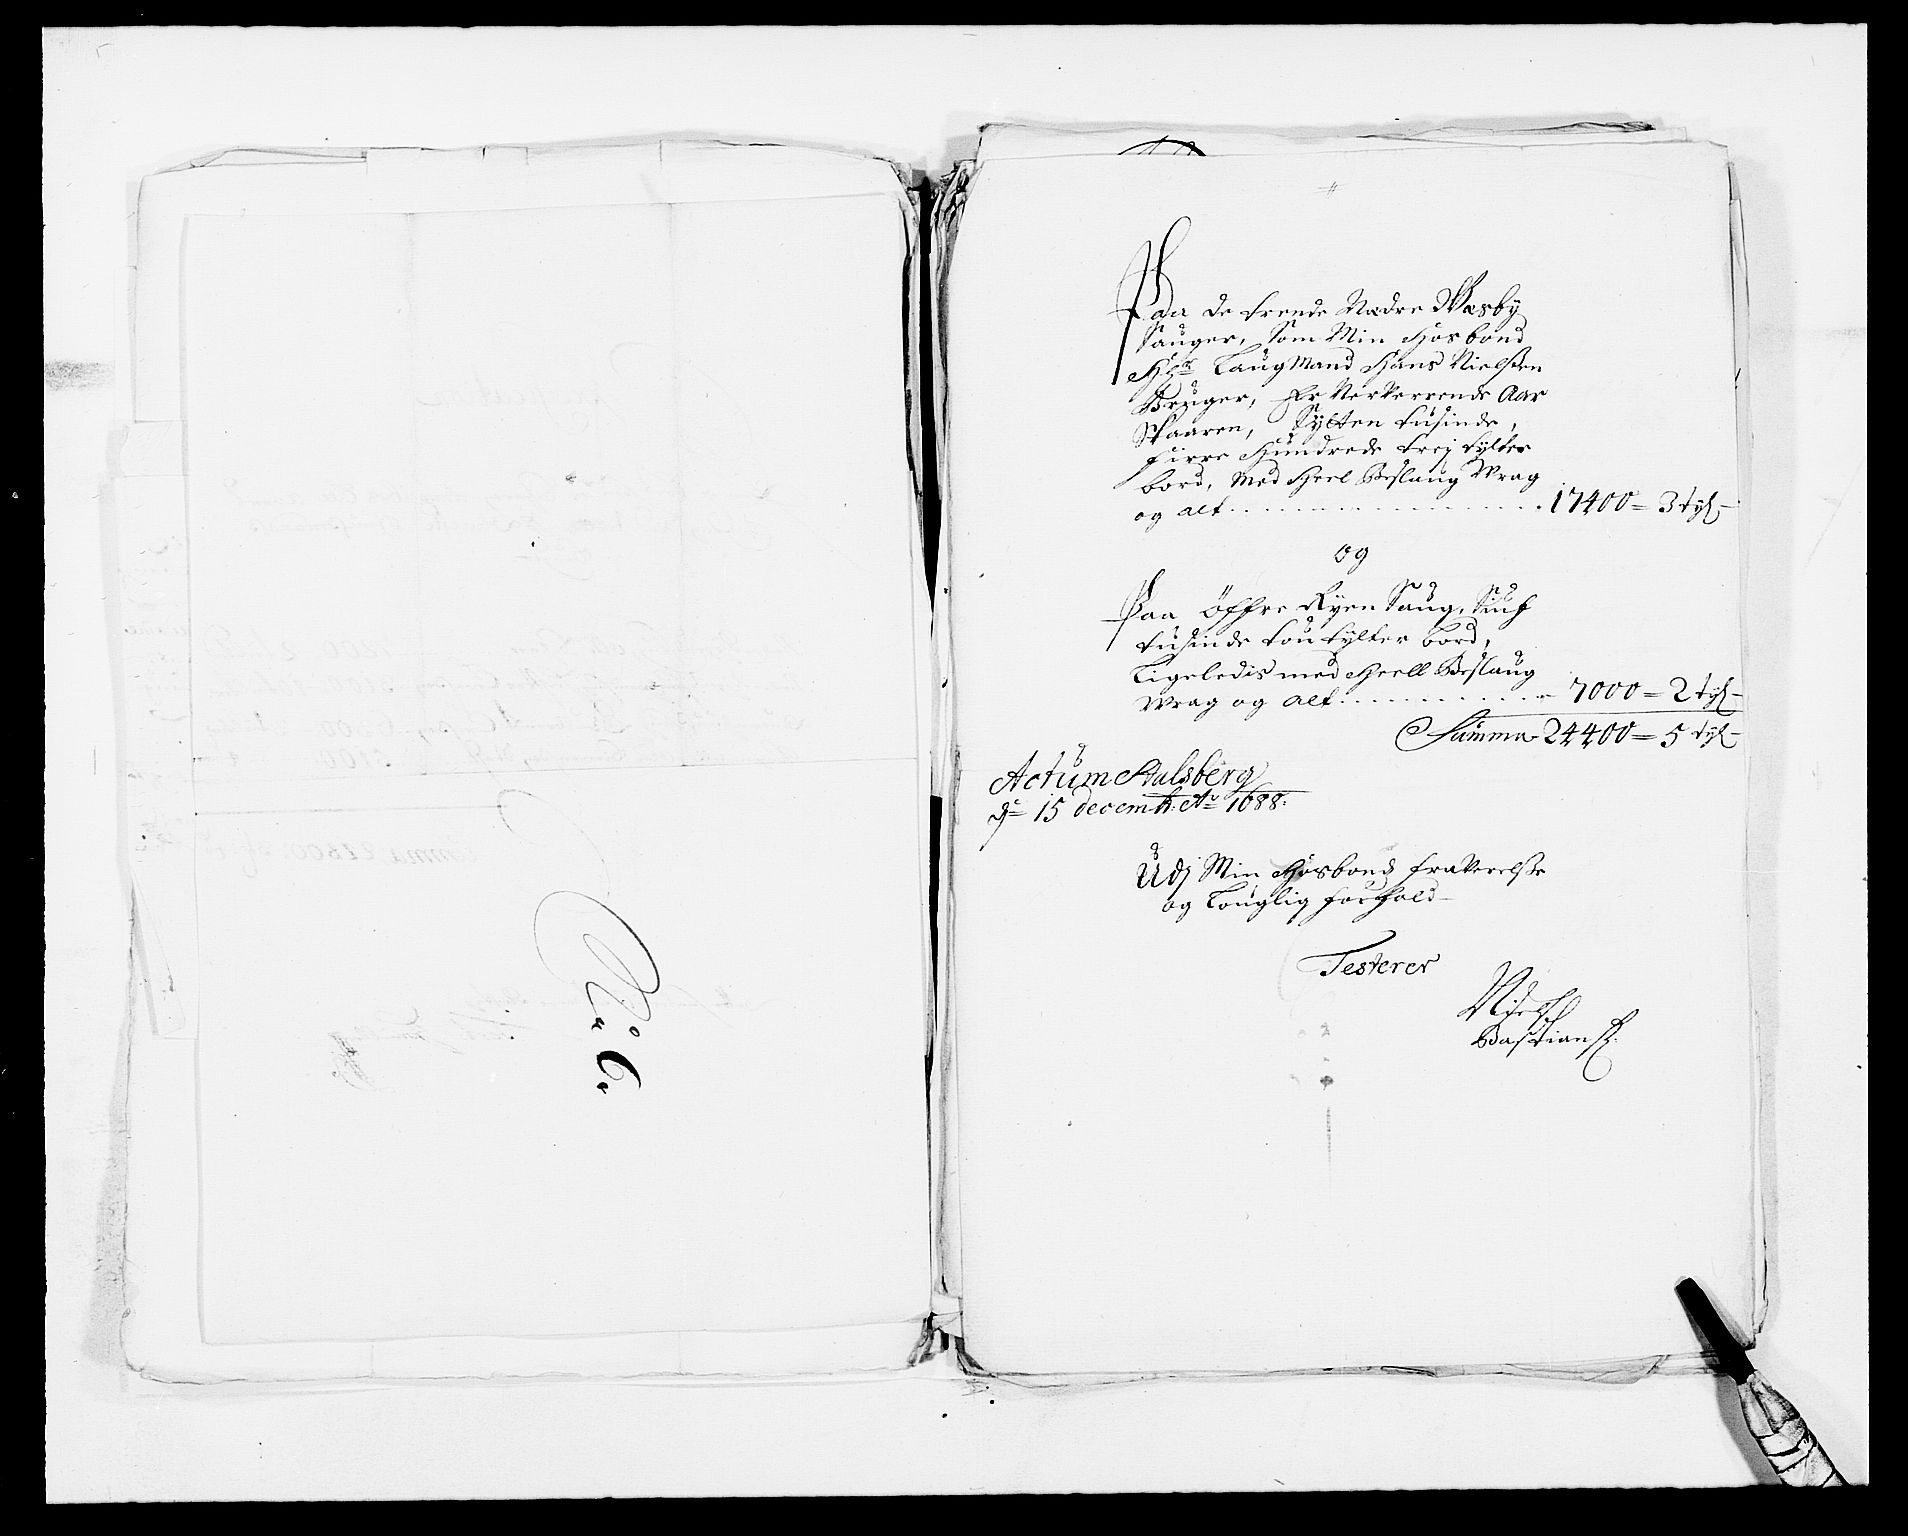 No 6
Paa de trende Nædre Næsby
Sauger, Som Min Hosbond
Hr Laugmand Hans Nielsen
Bruger, Er Nerverrende Aar
Skaaren, Sytten tusinde,
firre Hundrede trej tylter
bord, Med Heel Beslaug Wrag
og alt . . . . . . . . . . 17400 = 3 tyl
og
Paa Øffre Ryen Saug, Siuf
tusinde tou tylter bord,
Ligeledis med Heell Beslaug
Wrag og alt . . . . . . . . 7000 = 2 tyl
Summa 24400 = 5 tyl
Actum Hulsberg
dn 15 decemb: Ao 1688:
Udj Min Hosbonds fraverelsse
og Louglig forfold
Testerer
Niels
Bastians: